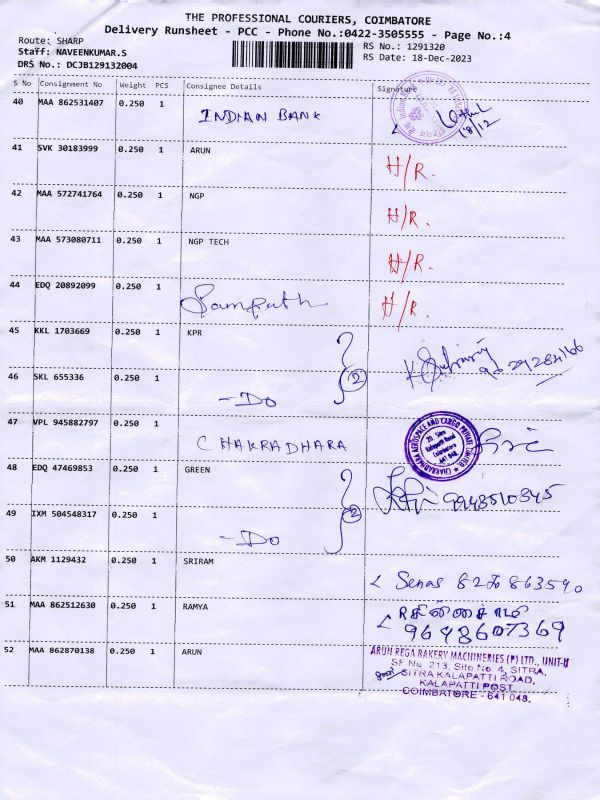 THE PROFESSIONAL COURIERS, COIMBATORE
Delivery Runsheet - PCC - Phone No.:0422-3505555 - Page No.:4
Route: SHARP
Staff: NAVEENKUMAR.S
DRS No.: DCJB129132004
RS No.: 1291320
RS Date: 18-Dec-2023
S No Consignment No Weight PCS Consignee Details Signature
40 MAA 862531407 0.250 1 INDIAN BANK
18/12
41 SVK 30183999 0.250 1 ARUN H/R.
42 MAA 572741764 0.250 1 NGP H/R.
43 MAA 573080711 0.250 1 NGP TECH H/R.
44 EDQ 20892099 0.250 1 Sampath H/R.
45 KKL 1703669 0.250 1 KPR
46 SKL 655336 0.250 1 -Do 2
47 VPL 945882797 0.250 1 CHAKRADHARA
CHAKRADHARA AEROSPACE AND CARGO PRIVATE LIMITED
48 EDQ 47469853 0.250 1 GREEN 9943510345
49 IXM 504548317 0.250 1 -Do 2
50 AKM 1129432 0.250 1 SRIRAM
51 MAA 862512630 0.250 1 RAMYA 9648607369
52 MAA 862870138 0.250 1 ARUN
ARUN REGA BAKERY MACHINERIES (P) LTD., UNIT-II
SF No. 213, Site No. 4, SITRA,
SITRA KALAPATTI ROAD,
KALAPATTI POST,
COIMBATORE - 641 048.